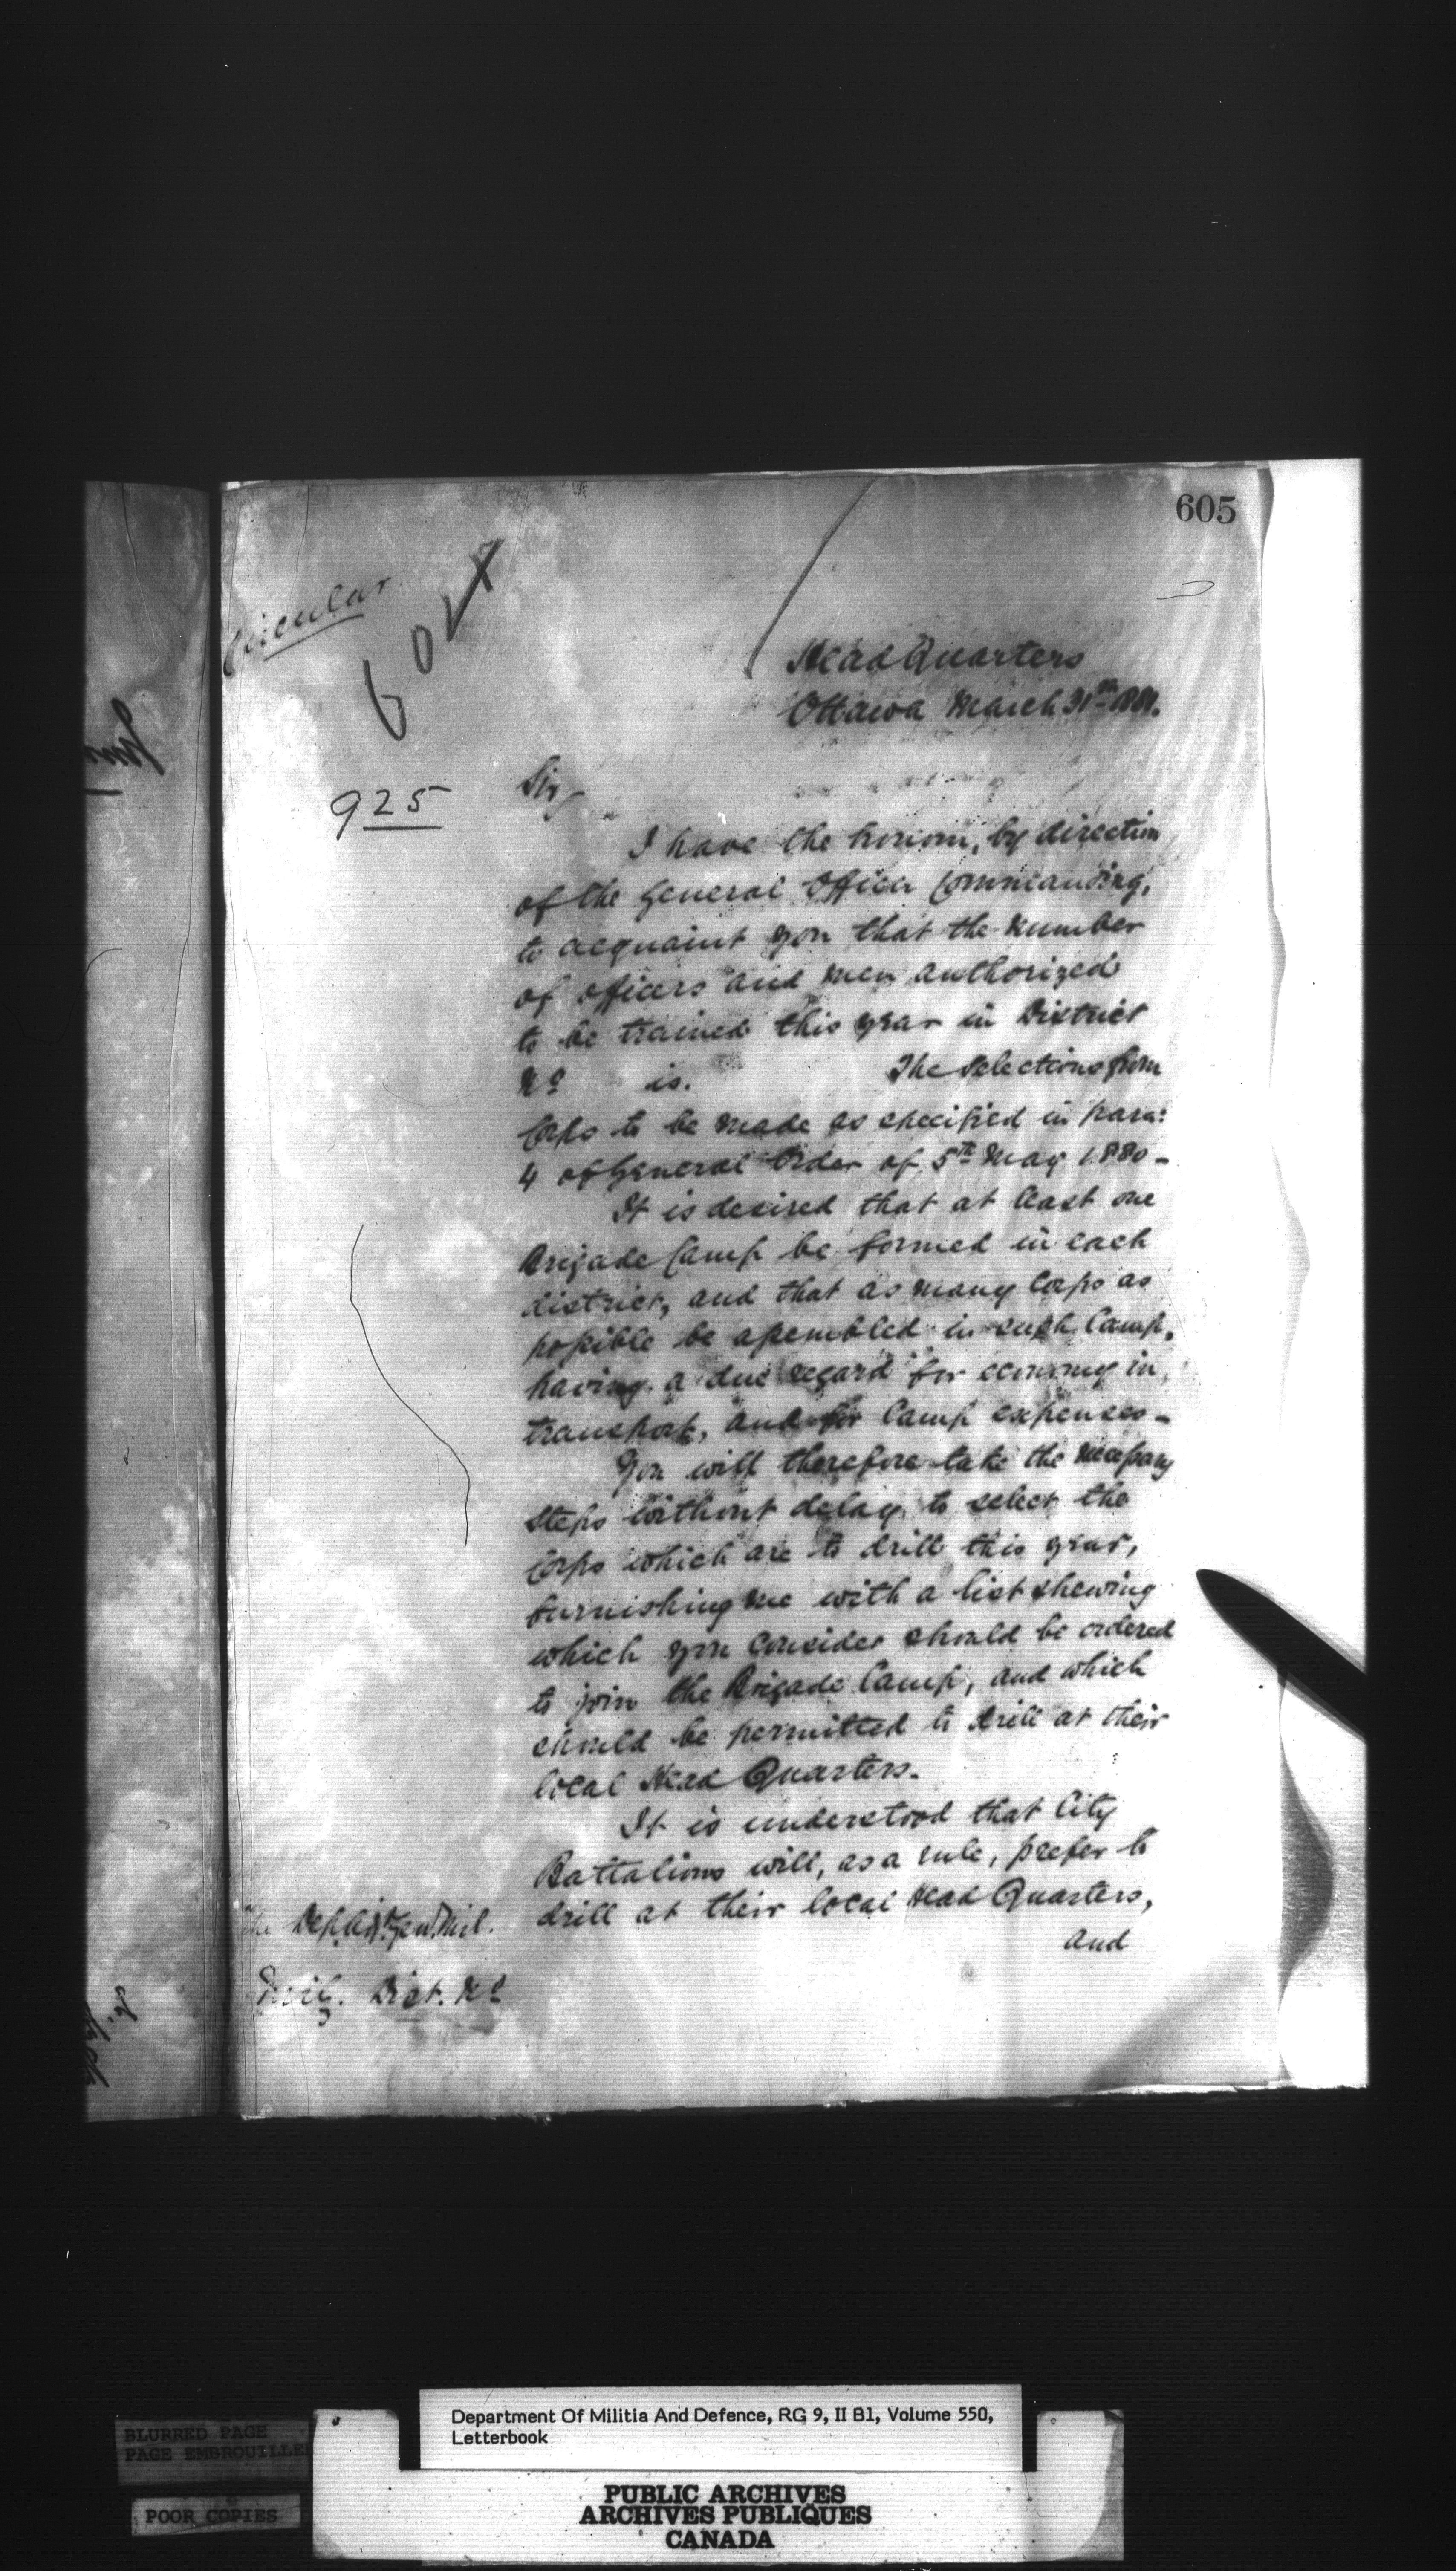 605
Circular
925
Head Quarters
Ottawa March 31st 1881.
Sir,
I have the honour, by direction
of the General Officer Commanding,
to acquaint you that the number
of officers and men authorized
to be trained this year in District
No is. The selections from
Corps to be made as specified in para:
4 of General Order of 5th May 1880 -
It is desired that at least one
Brigade Camp be formed in each
district, and that as many Corps as
possible be assembled in such Camp,
having a due regard for economy in
transport, and for Camp expenses -
You will therefore take the necessary
steps without delay to select the
Corps which are to drill this year,
furnishing me with a list shewing
which you consider should be ordered
to join the Brigade Camp, and which
should be permitted to drill at their
local Head Quarters.
It is understood that City
Battalions will, as a rule, prefer to
drill at their local Head Quarters,
and
The Dep. Adjt. Genl. Mil.
Mil. Dist. No
Department Of Militia And Defence, RG 9, II B1, Volume 550,
Letterbook
BLURRED PAGE
PAGE EMBROUILLEE
POOR COPIES
PUBLIC ARCHIVES
ARCHIVES PUBLIQUES
CANADA